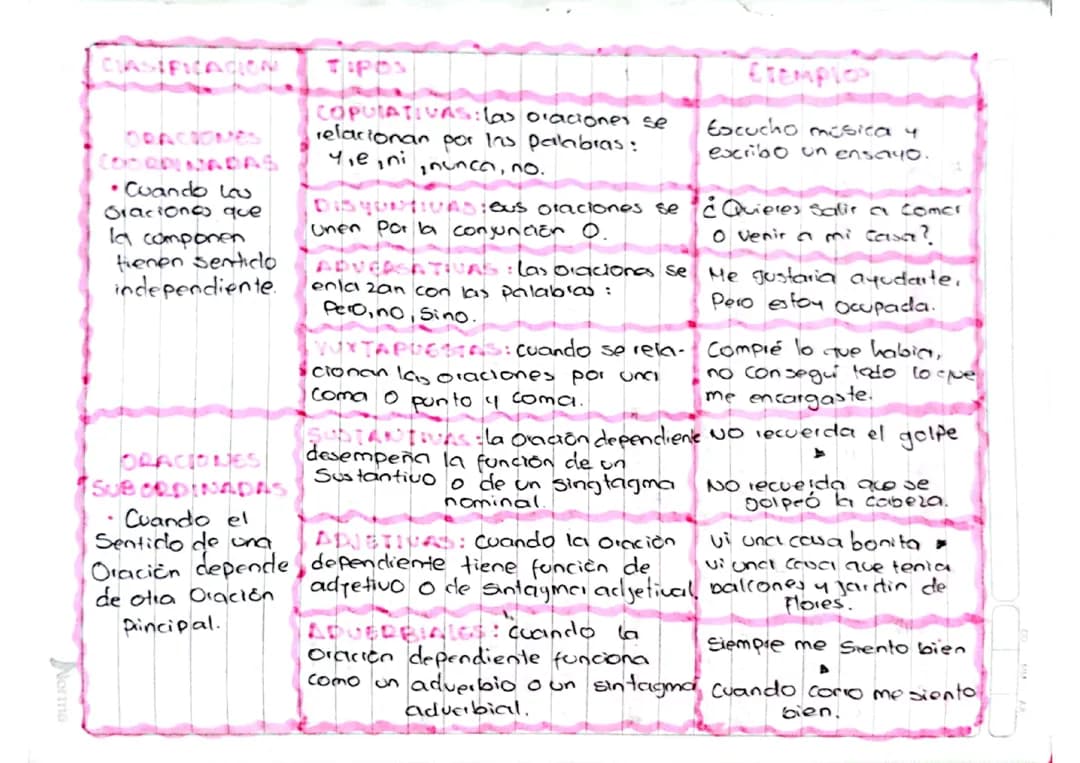 CLASIFICACION
TIPOS
EJEMPLOS
ORACIONES
COORDINADAS
• Cuando las
Oraciones que
la componen
tienen sentido
independiente.
COPULATIVAS: las oraciones se
relacionan por las palabras:
y, e, ni, nunca, no.
Escucho música y
escribo un ensayo.
DISYUNTIVAS: sus oraciones se
unen por la conjunción O.
¿Quieres salir a comer
o venir a mi casa?
ADVERSATIVAS: Las oraciones se
enlazan con las palabras:
Pero, no, sino.
Me gustaria ayudarte,
Pero estoy ocupada.
YUXTAPUESTAS: cuando se rela-
cionan las oraciones por una
coma o punto y coma.
Compré lo que habia,
no conseguí todo lo que
me encargaste.
ORACIONES
SUBORDINADAS
• Cuando el
Sentido de una
Oración depende
de otra Oración
principal.
SUSTANTIVAS: la oración dependiente
desempeña la función de un
Sustantivo o de un singtagma
nominal.
No recuerda el golpe
No recuerda que se
golpeó la cabeza.
ADJETIVAS: Cuando la oración
dependiente tiene función de
adjetivo o de sintagma adjetival.
Vi una casa bonita
vi una casa que tenia
balcones y jardin de
flores.
ADVERBIALES: cuando la
Oración dependiente funciona
como un adverbio o un sintagma
adverbial.
Siempre me siento bien
Cuando corro me siento
bien.
Norma